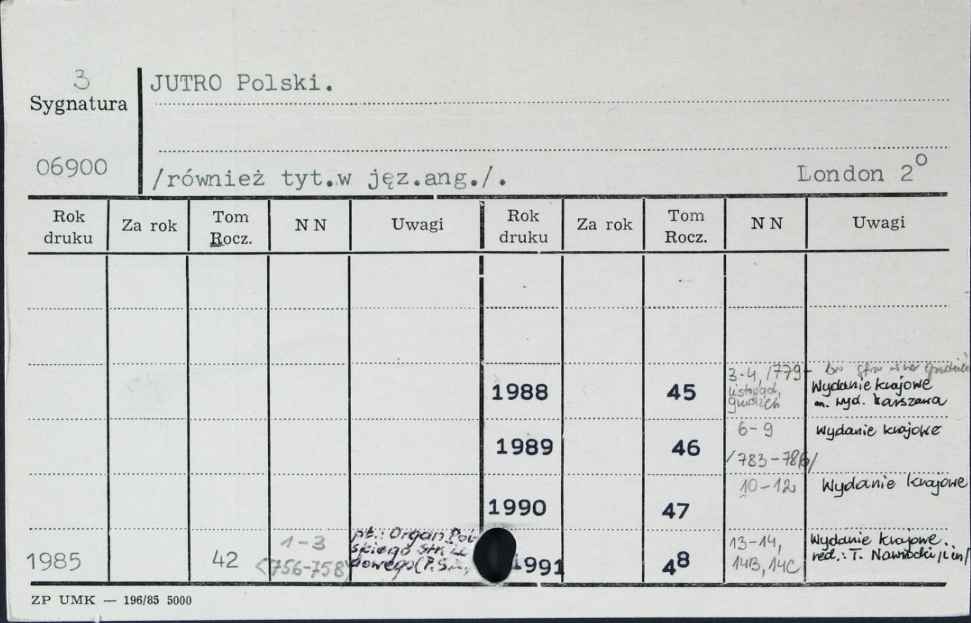 3
Sygnatura
JUTRO Polski.
06900
/również tyt.w jęz.ang./.
London 2°
Rok druku Za rok Tom Rocz. N N Uwagi Rok druku Za rok Tom Rocz. N N Uwagi
1988 45 3-4 /779-
listopad, grudzień
Wydanie krajowe
m. wyd. Warszawa
1989 46 6-9 /783-786/ Wydanie krajowe
1990 47 10-12 Wydanie krajowe
1985 42 1-3 <756-758>
pt.: Organ Pol
skiego Str. Lu
dowego (P.S.
1991 48 13-14, 14B, 14C
Wydanie krajowe.
red.: T. Nawrocki /i in/
ZP UMK — 196/85 5000